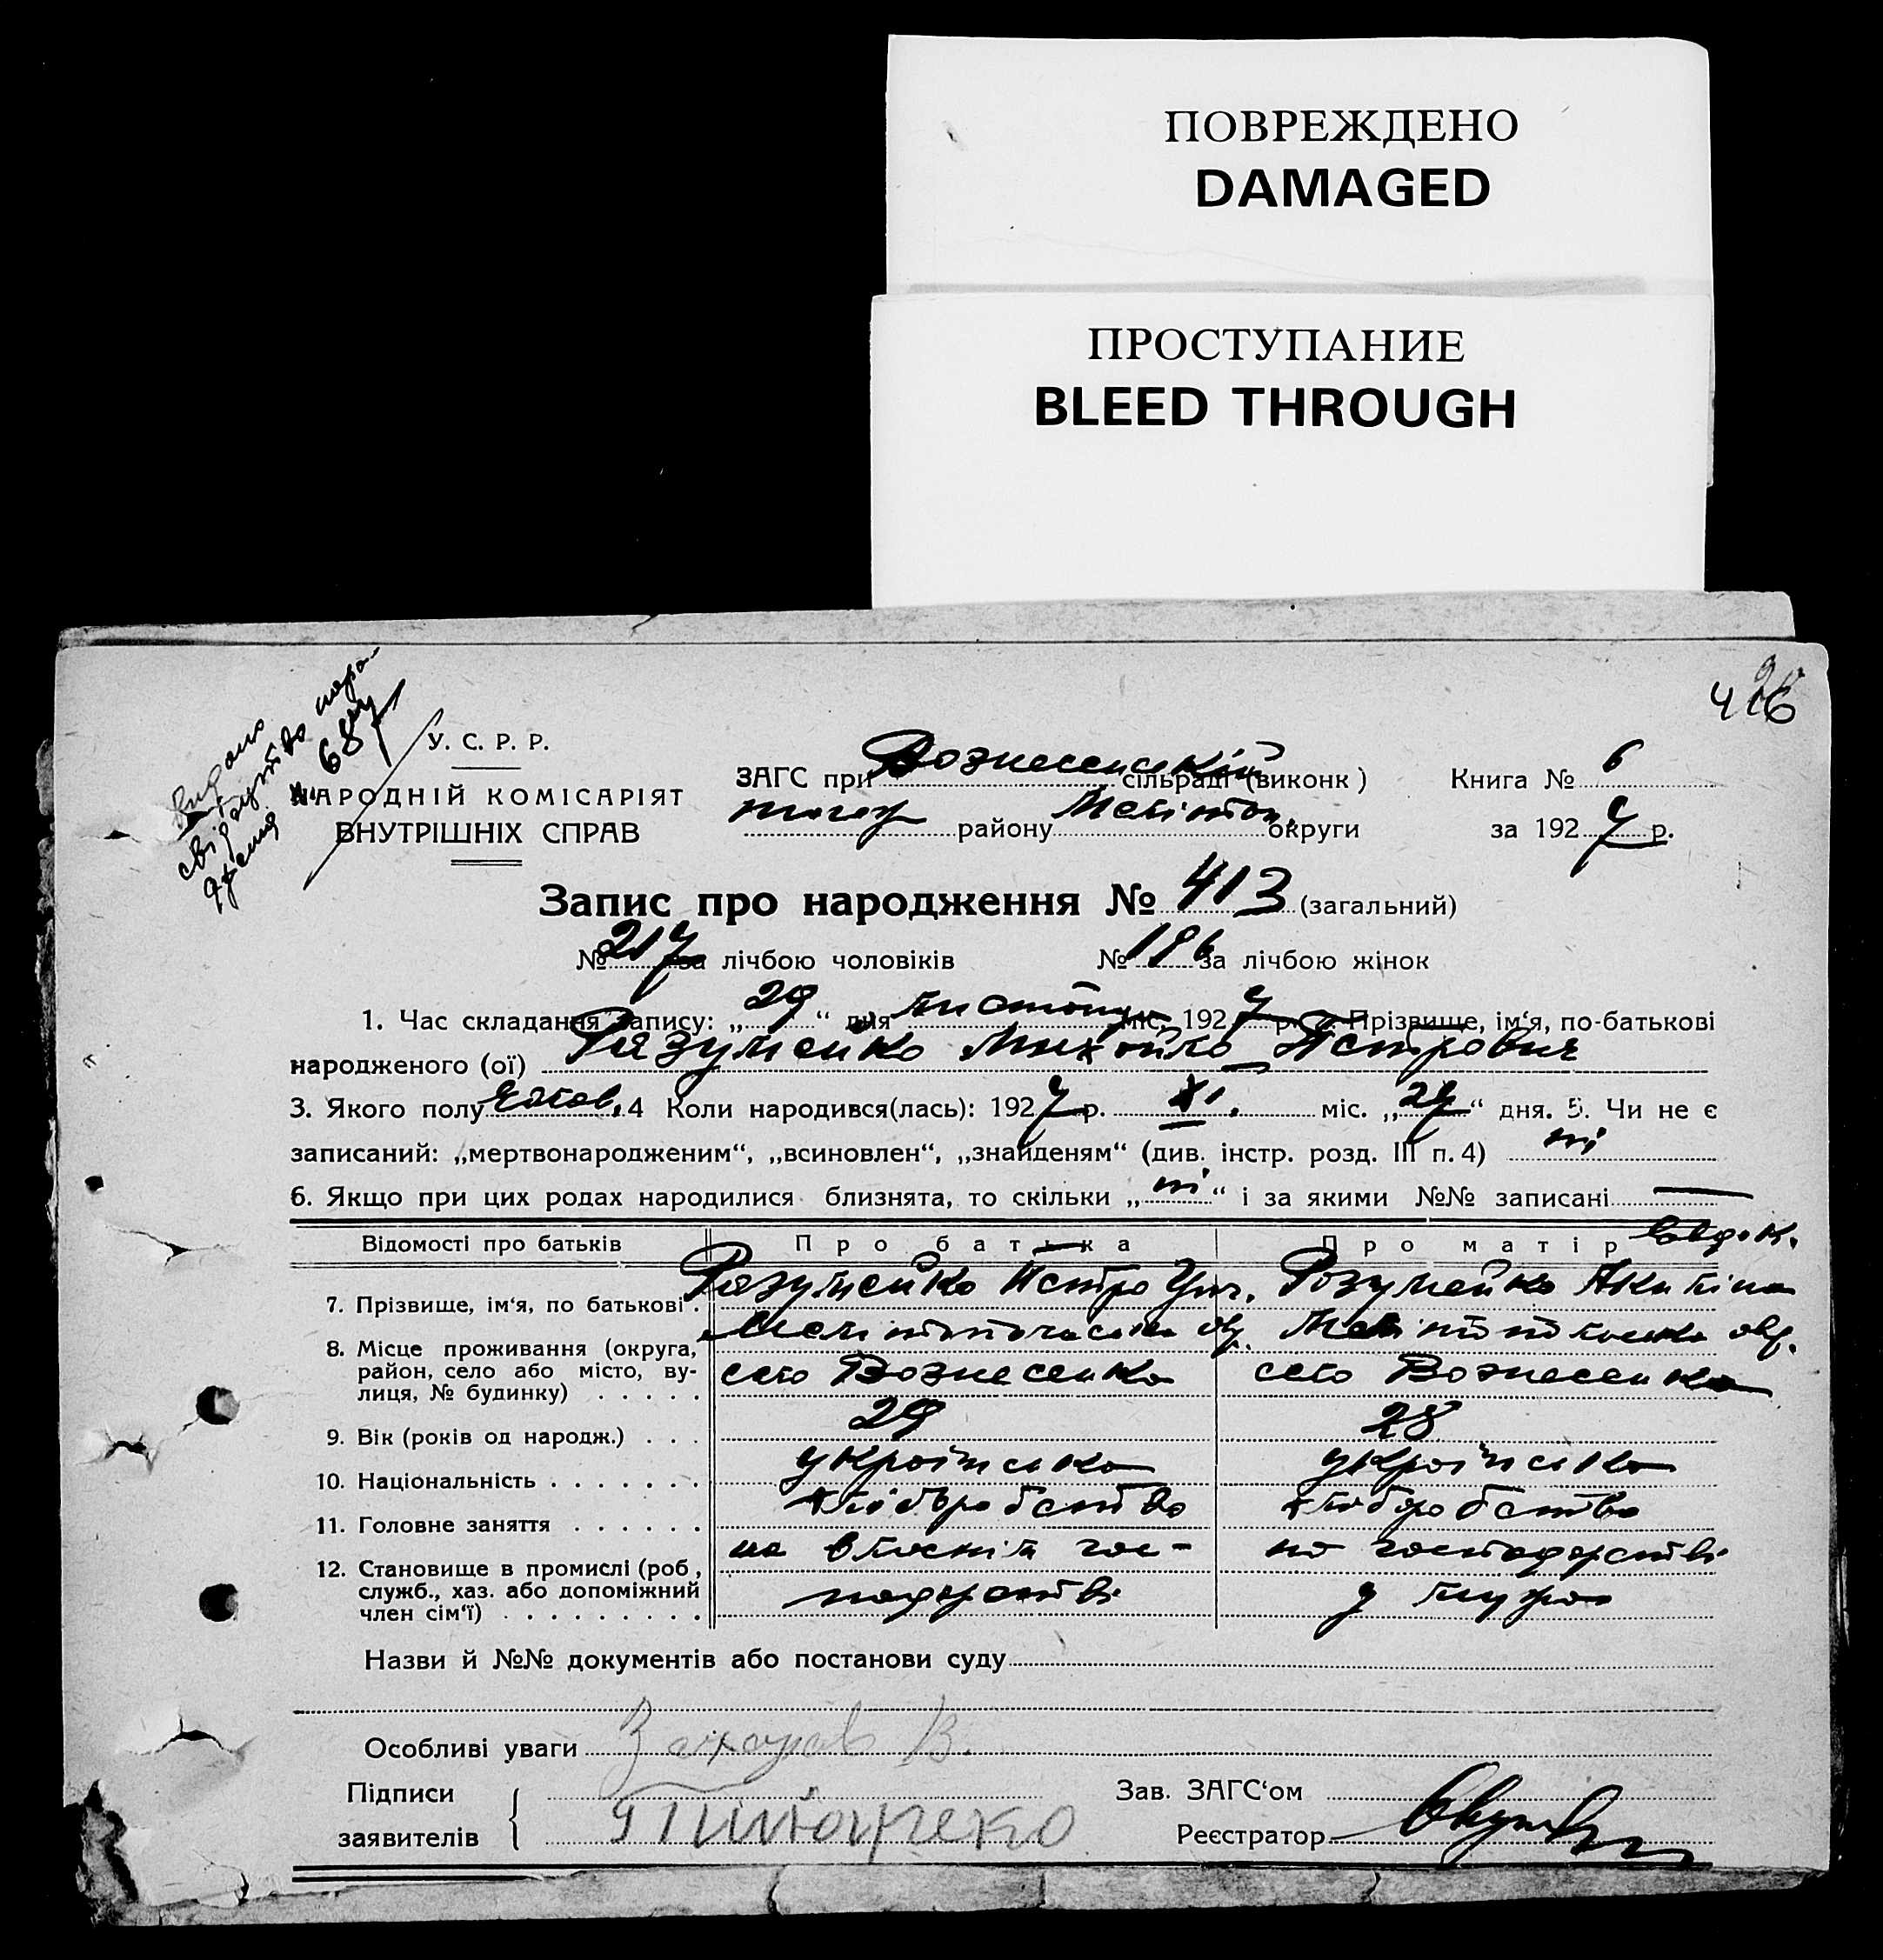 ПОВРЕЖДЕНО
DAMAGED
ПРОСТУПАНИЕ
BLEED THROUGH
У. С. Р. Р.
НАРОДНІЙ КОМІСАРІЯТ
ВНУТРІШНІХ СПРАВ
№ 687
ЗАГС при Вознесенській сільраді (виконк)
району Мелітоп. округи
Книга № 6
за 1927 р.
Запис про народження № 413 (загальний)
№ 217 за лічбою чоловіків № 196 за лічбою жінок
1. Час складання запису: „29“ дня листопад міс. 1927 р. 2. Прізвище, ім‘я, по-батькові
народженого (ої) Разумейко Михайло Петрович
3. Якого полу чолов. 4 Коли народився(лась): 1927 р. XI. міс. „27“ дня. 5. Чи не є
записаний: „мертвонародженим“, „всиновлен“, „знайденям“ (див. інстр. розд. III п. 4) ні
6. Якщо при цих родах народилися близнята, то скільки „ні“ і за якими №№ записані —
Відомості про батьків Про батька Про матір Евдок.
7. Прізвище, ім‘я, по батькові . Разумейко Петро Розумейко Акилина
8. Місце проживання (округа, район, село або місто, вулиця, № будинку) . . . . . Мелітопольська окр. село Вознесенка Мелітопольська окр. село Вознесенка
9. Вік (років од народж.) . . . 29 28
10. Національність . . . . . . . українська українська
11. Головне заняття . . . . . . хліборобство хліборобство
12. Становище в промислі (роб, служб., хаз. або допоміжний член сім‘ї) . . . . . . . . . на власнім господарстві на господарстві у мужа
Назви й №№ документів або постанови суду
Особливі уваги
Підписи
заявителів
Зав. ЗАГС‘ом
Реєстратор